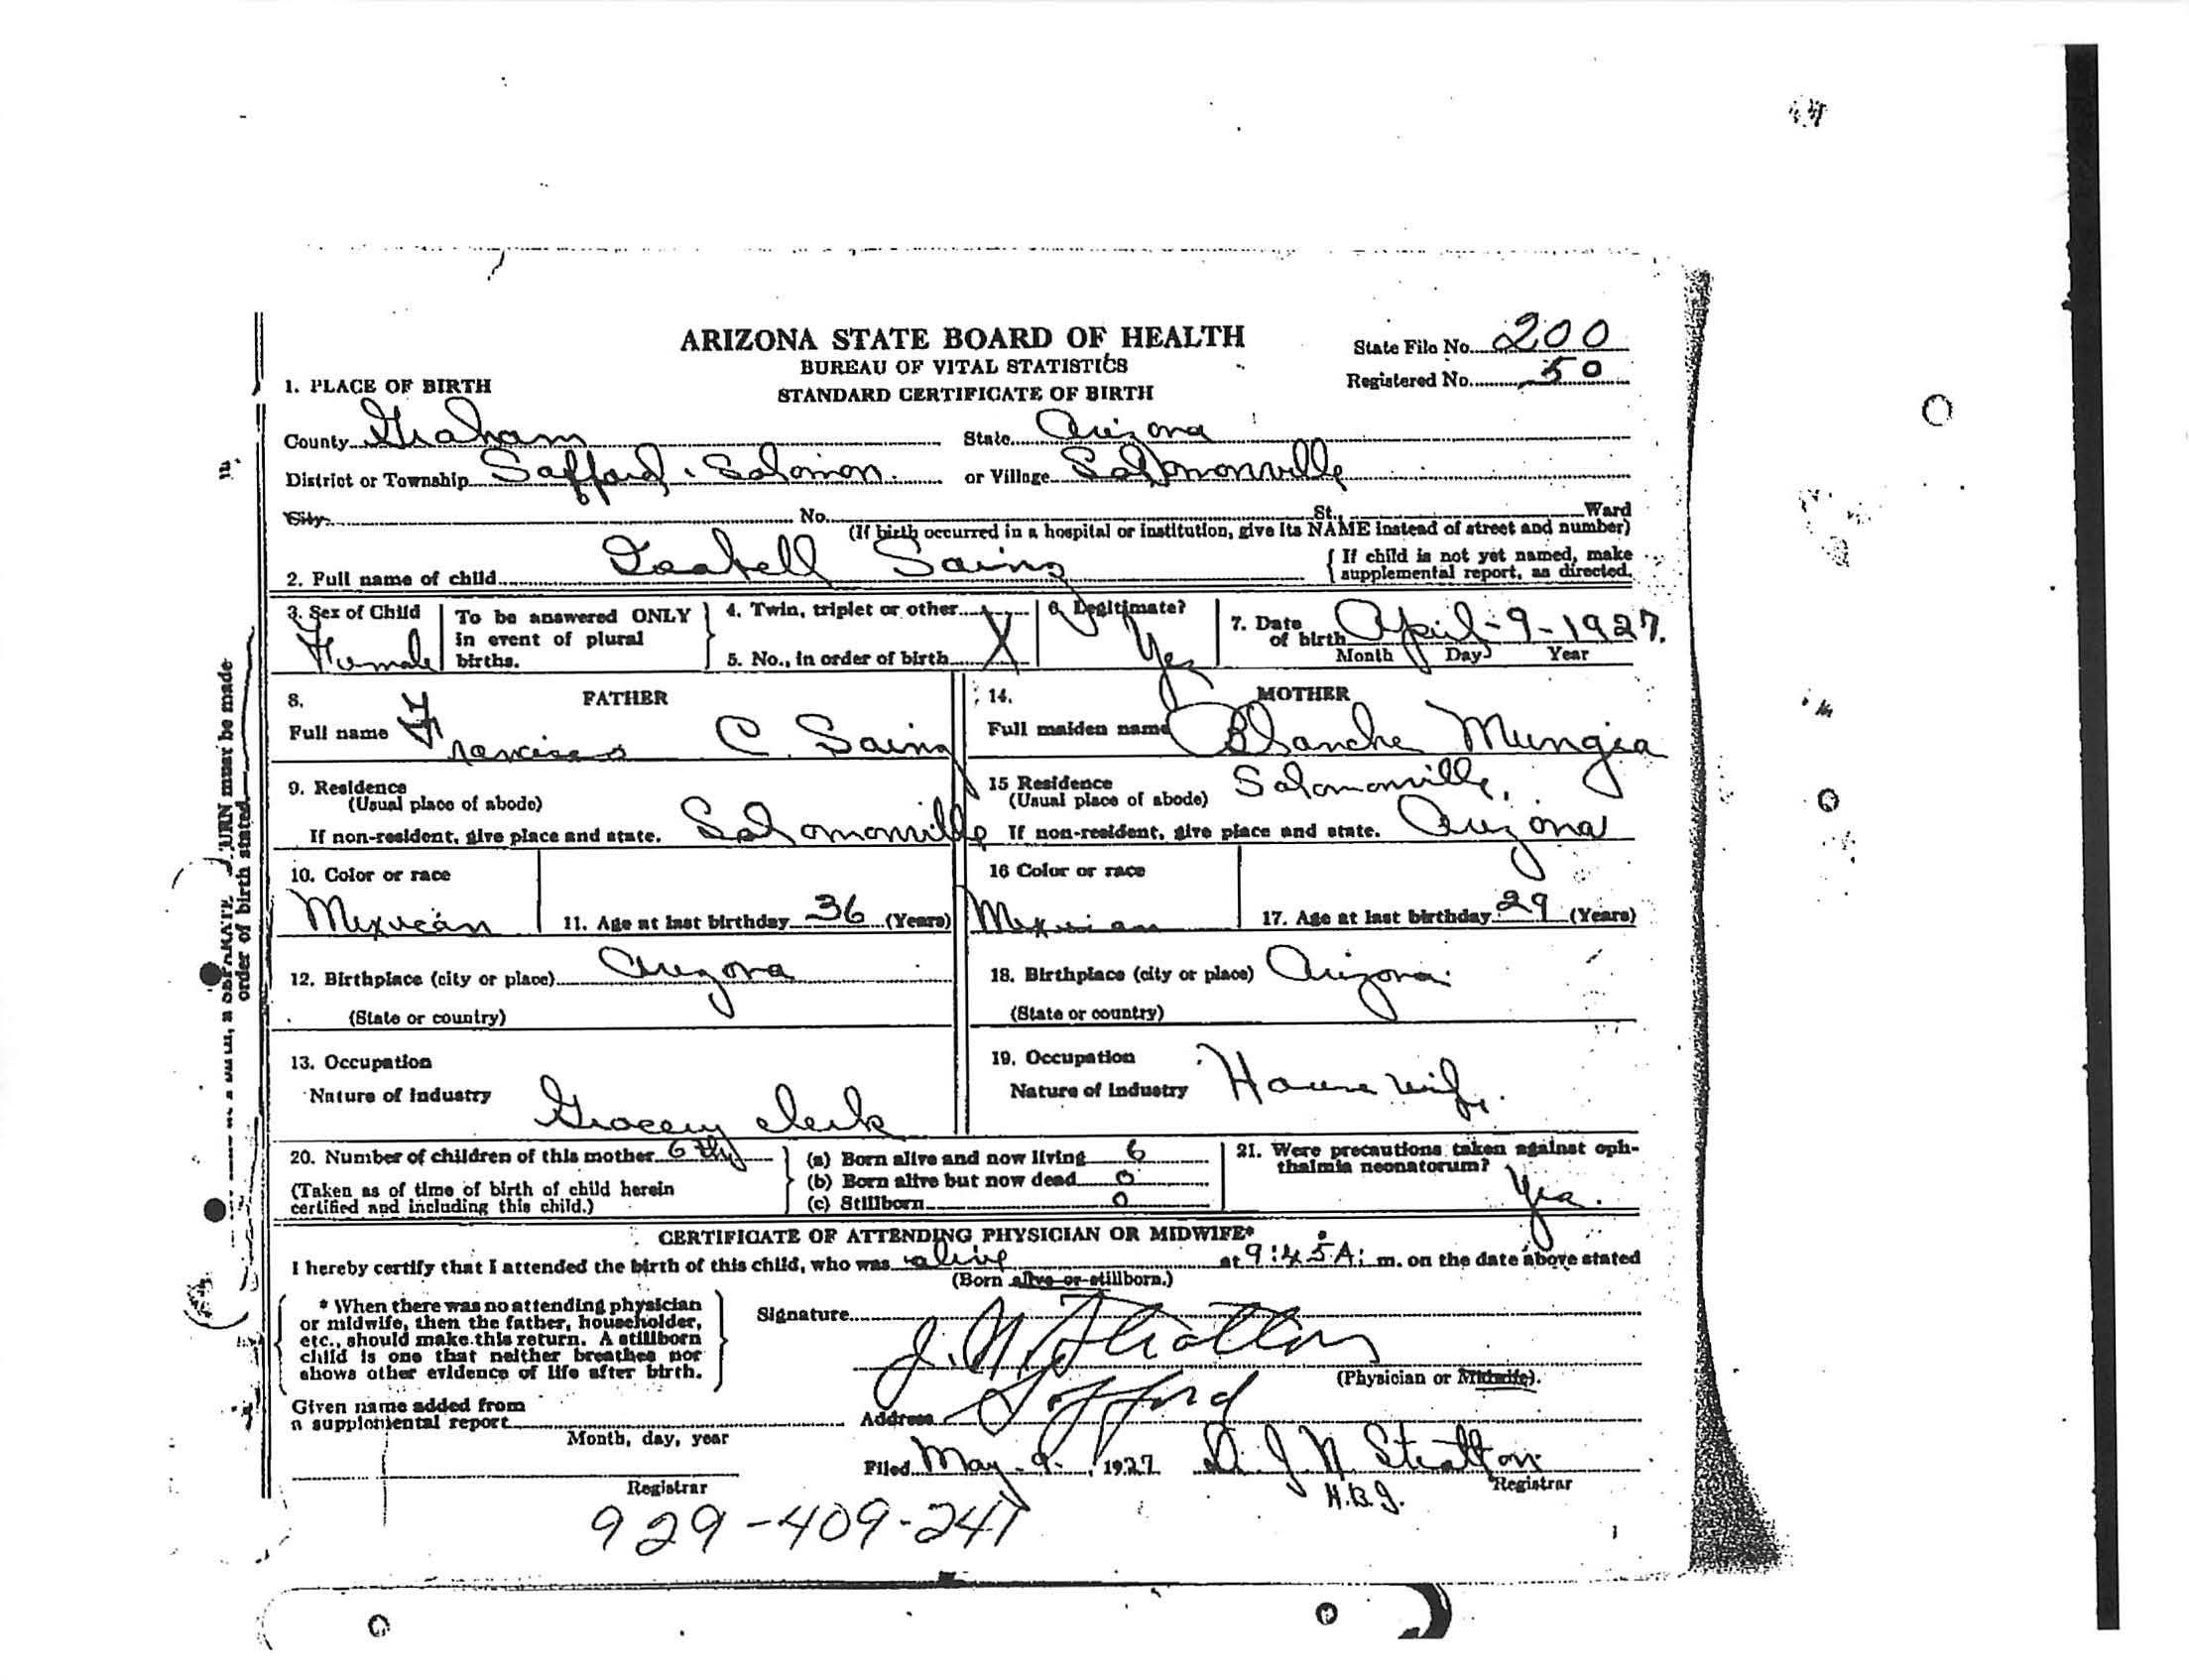 ARIZONA STATE BOARD OF HEALTH
BUREAU OF VITAL STATISTICS
STANDARD CERTIFICATE OF BIRTH
State File No. 200
Registered No. 50
1. PLACE OF BIRTH
County Graham State Arizona
District or Township Safford - Solomon or Village Solomonville
City No. St., Ward
(If birth occurred in a hospital or institution, give its NAME instead of street and number)
2. Full name of child Isabell Sainz
{ If child is not yet named, make
supplemental report, as directed.
3. Sex of Child Female
To be answered ONLY
in event of plural
births.
4. Twin, triplet or other X
5. No., in order of birth
6. Legitimate? Yes
7. Date
of birth April - 9 - 1927.
Month Day Year
8. FATHER
Full name Francisco C. Sainz
9. Residence
(Usual place of abode)
If non-resident, give place and state. Solomonville
10. Color or race
Mexican
11. Age at last birthday 36 (Years)
12. Birthplace (city or place) Arizona
(State or country)
13. Occupation
Nature of Industry Grocery clerk
14. MOTHER
Full maiden name Blanche Mungia
15 Residence
(Usual place of abode) Solomonville,
If non-resident, give place and state. Arizona
16 Color or race
Mexican
17. Age at last birthday 29 (Years)
18. Birthplace (city or place) Arizona
(State or country)
19. Occupation
Nature of Industry House wife.
20. Number of children of this mother 6 th
(Taken as of time of birth of child herein
certified and including this child.)
(a) Born alive and now living 6
(b) Born alive but now dead 0
(c) Stillborn 0
21. Were precautions taken against oph-
thalmia neonatorum? Yes.
CERTIFICATE OF ATTENDING PHYSICIAN OR MIDWIFE*
I hereby certify that I attended the birth of this child, who was alive at 9:45 A. m. on the date above stated
(Born alive or stillborn.)
* When there was no attending physician
or midwife, then the father, householder,
etc., should make this return. A stillborn
child is one that neither breathes nor
shows other evidence of life after birth.
Signature J. N. Stratton
(Physician or Midwife).
Given name added from
a supplemental report
Month, day, year
Address Safford
Filed May - 9 - , 1927 Dr J N Stratton
Registrar
H.B.J.
Registrar
929-409-247
TURN must be made
order of birth stated